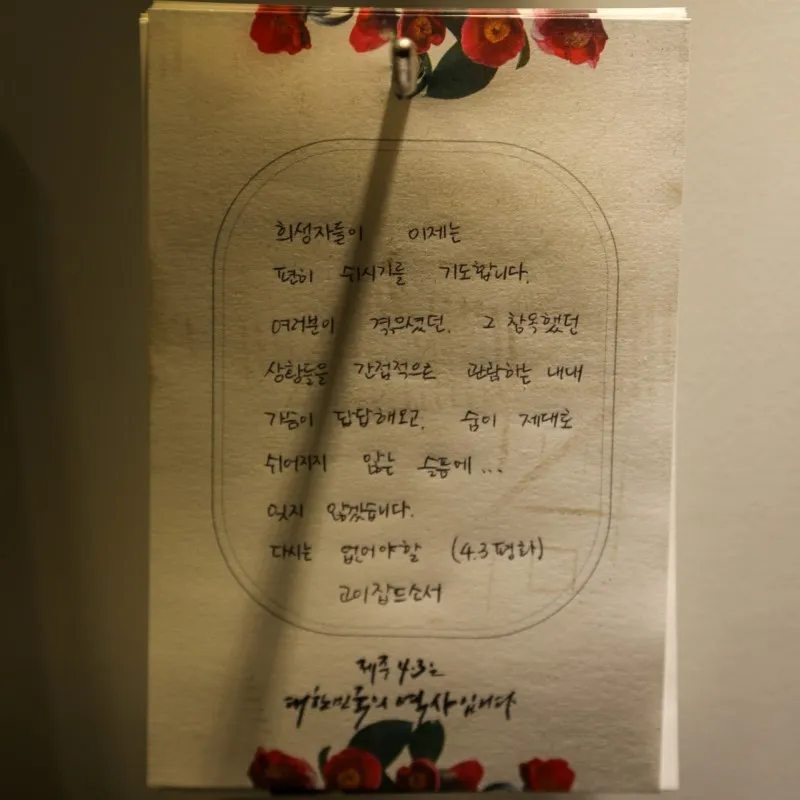 희생자들이 이제는
편히 쉬시기를 기도합니다.
여러분이 겪으셨던. 그 참옥했던
상황들을 간접적으로 관람하는 내내
가슴이 답답해오고. 숨이 제대로
쉬어지지 않는 슬픔에...
잊지 않겠습니다.
다시는 없어야할 (4.3평화)
고이잠드소서
제주4.3은
대한민국의 역사입니다